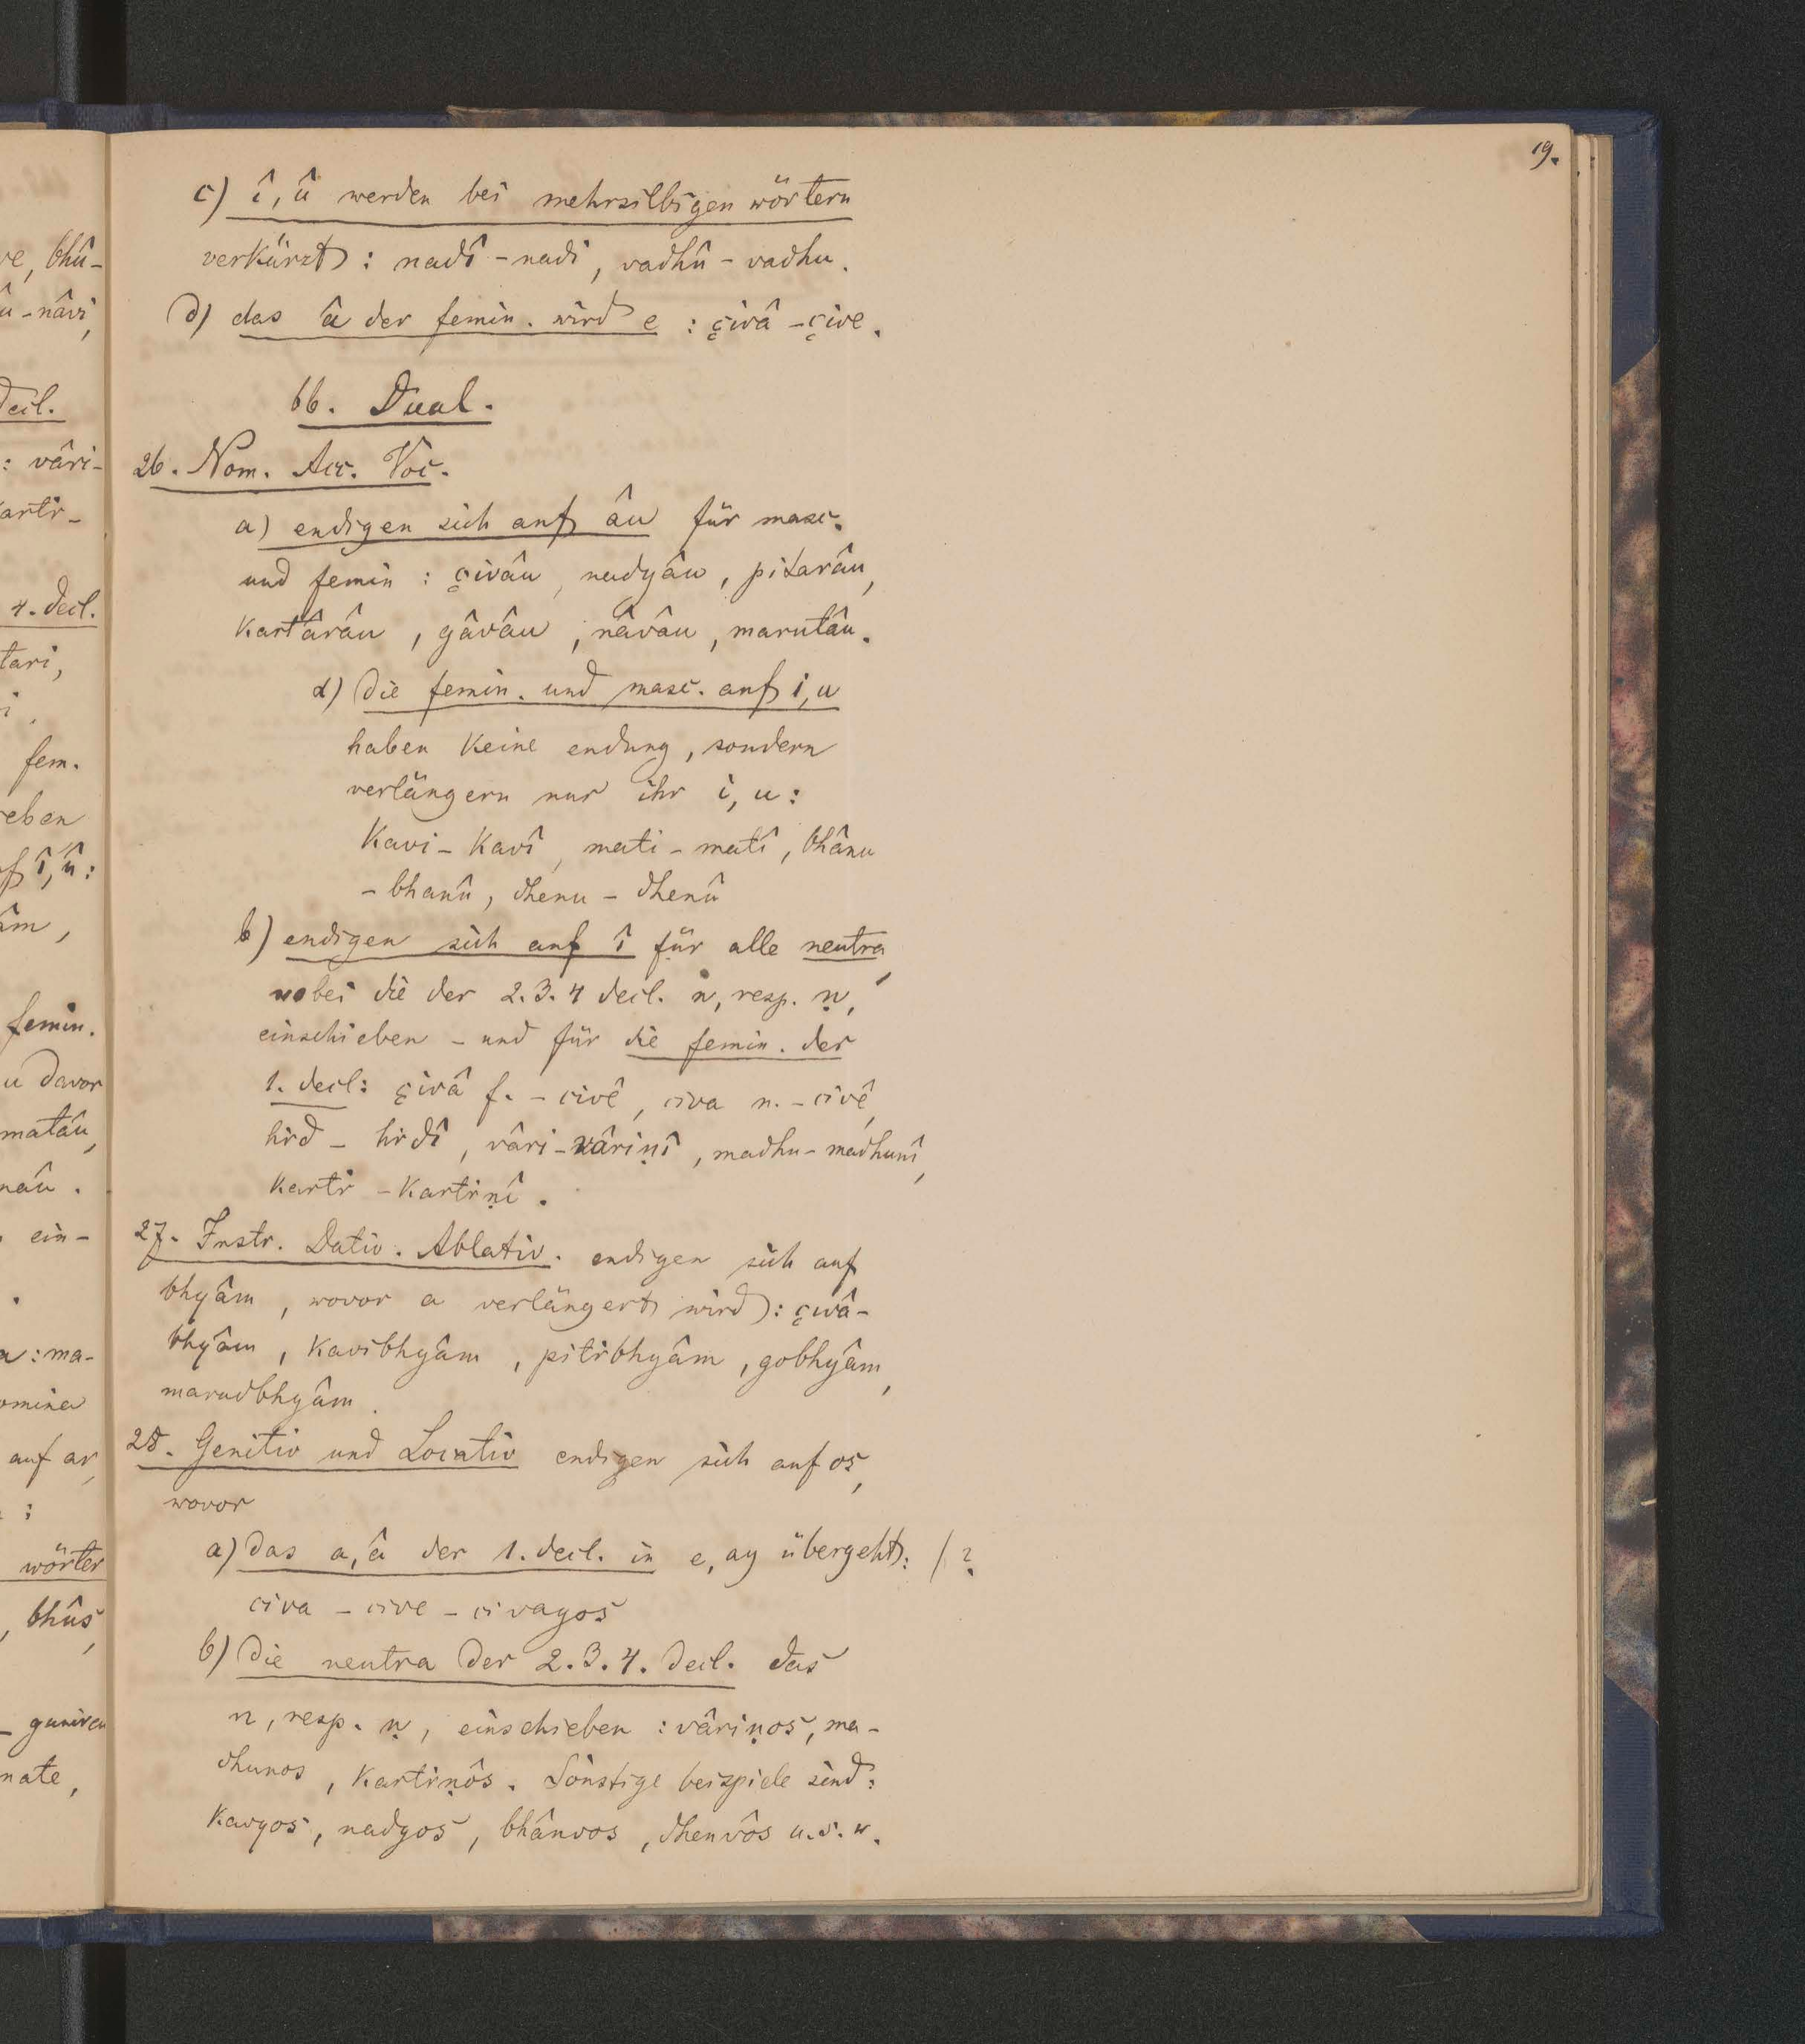 ve, bhû-
û-nâvi,
decl.
: vâri-
kartr-
4. decl.
tari,
i,
fem.
eben
f î, û:
âm,
femin.
u davor
matâu,
nâu.
ein-
a: ma-
omina
auf ar,
:
wörter
, bhûs,
guniren
nate,
19.
c) î, û werden bei mehrsilbigen wörtern
verkürzt: nadî - nadi, vadhû - vadhu.
d) das â der femin. wird e: çivâ - çive.
bb. Dual.
26. Nom. Acc. Voc.
a) endigen sich auf âu für masc.
und femin: çivâu, nadyâu, pitarâu,
kartârâu, gâvâu, nâvâu, marutâu.
α) die femin. und masc. auf i, u
haben keine endung, sondern
verlängern nur ihr i, u:
kavi - kavî, mati - matî, bhânu
- bhanû, dhenu - dhenû
b) endigen sich auf î für alle neutra,
wobei die der 2. 3. 4 decl. n, resp. ṇ,
einschieben - und für die femin. der
1. decl: çivâ f. - civê, civa n. - civê,
hrd - hrdî, vâri - vâriṇî, madhu - madhunî,
kartr - kartrṇî.
27. Instr. Dativ. Ablativ. endigen sich auf
bhyâm, wovor a verlängert wird: çivâ-
bhyâm, kavibhyâm, pitrbhyâm, gobhyâm,
marudbhyâm.
28. Genitiv und Locativ endigen sich auf os,
wovor
a) das a, â der 1. decl. in e, ay übergeht: /?
civa - cive - civayos
b) die neutra der 2. 3. 4. decl. das
n, resp. ṇ, einschieben: vâriṇos, ma-
dhunos, kartrṇôs. Sonstige beispiele sind:
kavyos, nadyos, bhânvos, dhenvôs u. s. w.